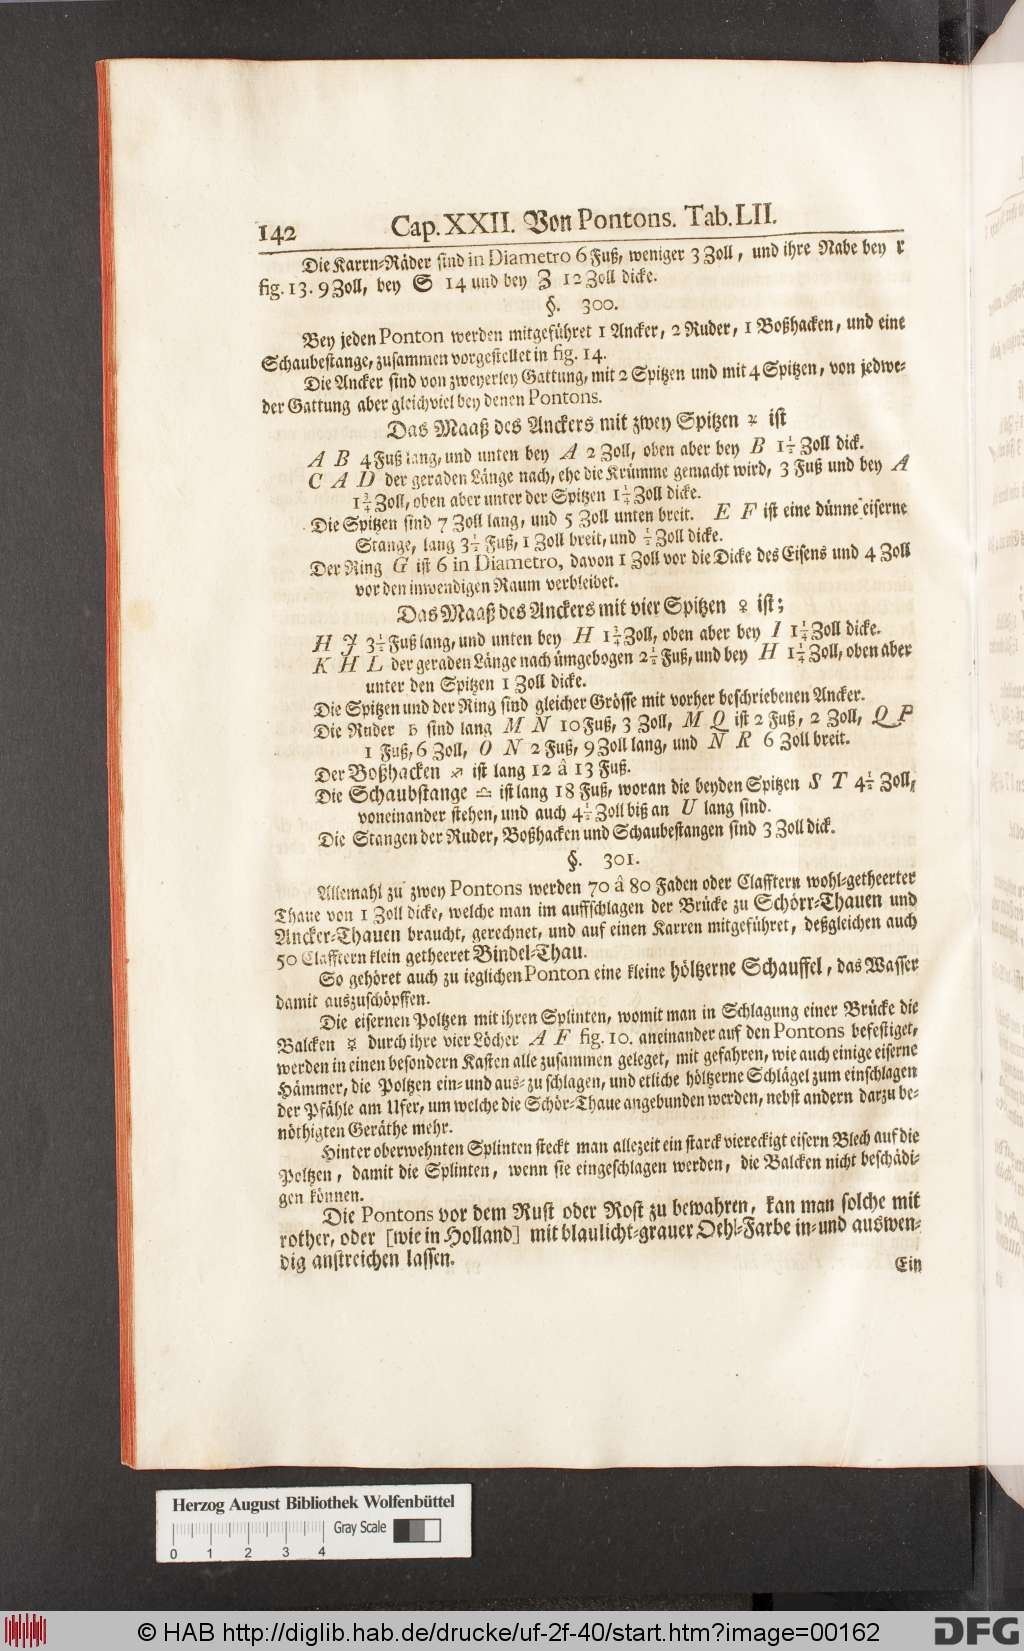 142 Cap. XXII. Von Pontons. Tab. LII.
Die Karrn-Räder sind in Diametro 6 Fuß, weniger 3 Zoll, und ihre Nabe bey r
fig. 13. 9 Zoll, bey S 14 und bey Z 12 Zoll dicke.
§. 300.
Bey jeden Ponton werden mitgeführet 1 Ancker, 2 Ruder, 1 Boßhacken, und eine
Schaubestange, zusammen vorgestellet in fig. 14.
Die Ancker sind von zweyerley Gattung, mit 2 Spitzen und mit 4 Spitzen, von jedwe-
der Gattung aber gleichviel bey denen Pontons.
Das Maaß des Anckers mit zwey Spitzen ♃ ist
A B 4 Fuß lang, und unten bey A 2 Zoll, oben aber bey B 1½ Zoll dick.
C A D der geraden Länge nach, ehe die Krümme gemacht wird, 3 Fuß und bey A
1¾ Zoll, oben aber unter der Spitzen 1¼ Zoll dicke.
Die Spitzen sind 7 Zoll lang, und 5 Zoll unten breit. E F ist eine dünne eiserne
Stange, lang 3½ Fuß, 1 Zoll breit, und ½ Zoll dicke.
Der Ring G ist 6 in Diametro, davon 1 Zoll vor die Dicke des Eisens und 4 Zoll
vor den inwendigen Raum verbleibet.
Das Maaß des Anckers mit vier Spitzen ♀ ist;
H J 3½ Fuß lang, und unten bey H 1¾ Zoll, oben aber bey I 1¼ Zoll dicke.
K H L der geraden Länge nach umgebogen 2½ Fuß, und bey H 1¼ Zoll, oben aber
unter den Spitzen 1 Zoll dicke.
Die Spitzen und der Ring sind gleicher Grösse mit vorher beschriebenen Ancker.
Die Ruder ♄ sind lang M N 10 Fuß, 3 Zoll, M Q ist 2 Fuß, 2 Zoll, Q P
1 Fuß, 6 Zoll, O N 2 Fuß, 9 Zoll lang, und N R 6 Zoll breit.
Der Boßhacken ♐ ist lang 12 â 13 Fuß.
Die Schaubstange ♎ ist lang 18 Fuß, woran die beyden Spitzen S T 4½ Zoll,
voneinander stehen, und auch 4½ Zoll biß an U lang sind.
Die Stangen der Ruder, Boßhacken und Schaubestangen sind 3 Zoll dick.
§. 301.
Allemahl zu zwey Pontons werden 70 â 80 Faden oder Clafftern wohl-getheerter
Thaue von 1 Zoll dicke, welche man im auffschlagen der Brücke zu Schörr-Thauen und
Ancker-Thauen braucht, gerechnet, und auf einen Karren mitgeführet, deßgleichen auch
50 Clafftern klein getheeret Bindel-Thau.
So gehöret auch zu ieglichen Ponton eine kleine höltzerne Schauffel, das Wasser
damit auszuschöpffen.
Die eisernen Poltzen mit ihren Splinten, womit man in Schlagung einer Brücke die
Balcken ☿ durch ihre vier Löcher A F fig. 10. aneinander auf den Pontons befestiget,
werden in einen besondern Kasten alle zusammen geleget, mit gefahren, wie auch einige eiserne
Hämmer, die Poltzen ein- und aus-zu schlagen, und etliche höltzerne Schlägel zum einschlagen
der Pfähle am Ufer, um welche die Schör-Thaue angebunden werden, nebst andern darzu be-
nöthigten Geräthe mehr.
Hinter oberwehnten Splinten steckt man allezeit ein starck viereckigt eisern Blech auf die
Poltzen, damit die Splinten, wenn sie eingeschlagen werden, die Balcken nicht beschädi-
gen können.
Die Pontons vor dem Rust oder Rost zu bewahren, kan man solche mit
rother, oder [wie in Holland] mit blaulicht-grauer Oehl-Farbe in-und auswen-
dig anstreichen lassen.
Ein
Herzog August Bibliothek Wolfenbüttel
Gray Scale
0 1 2 3 4
© HAB http://diglib.hab.de/drucke/uf-2f-40/start.htm?image=00162
DFG